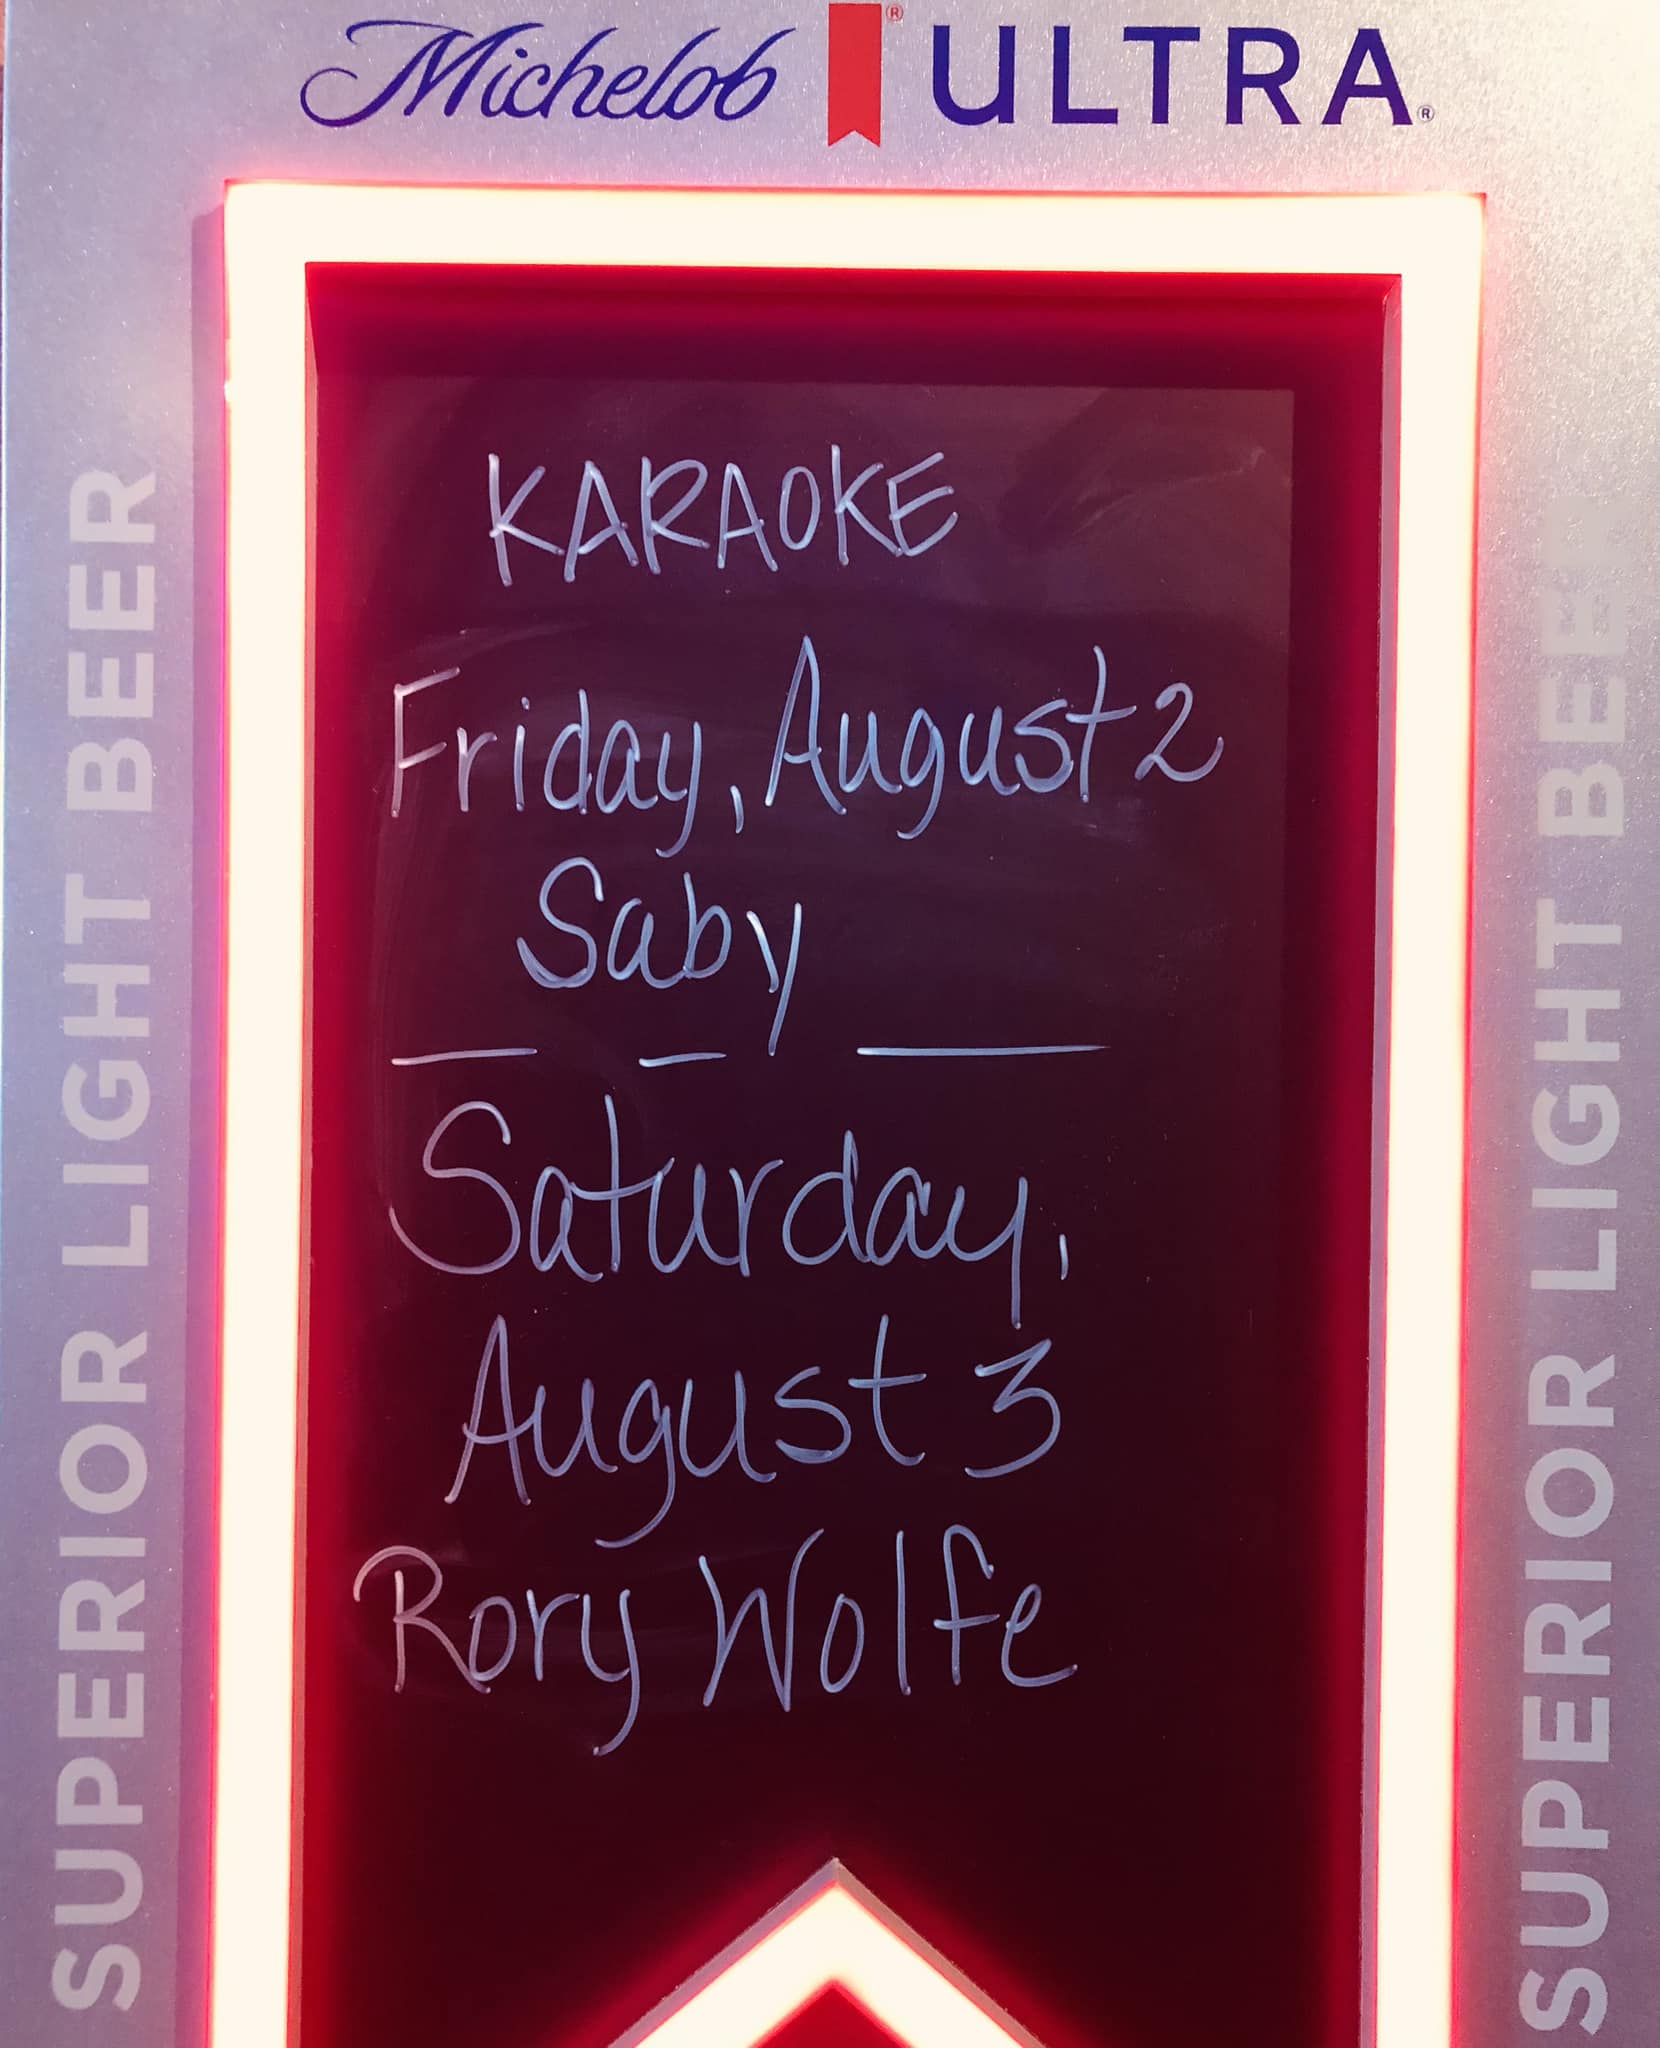 Michelob ULTRA
SUPERIOR LIGHT BEER
KARAOKE
Friday, August 2
Saby
Saturday,
August 3
Rory Wolfe
SUPERIOR LIGHT BEER